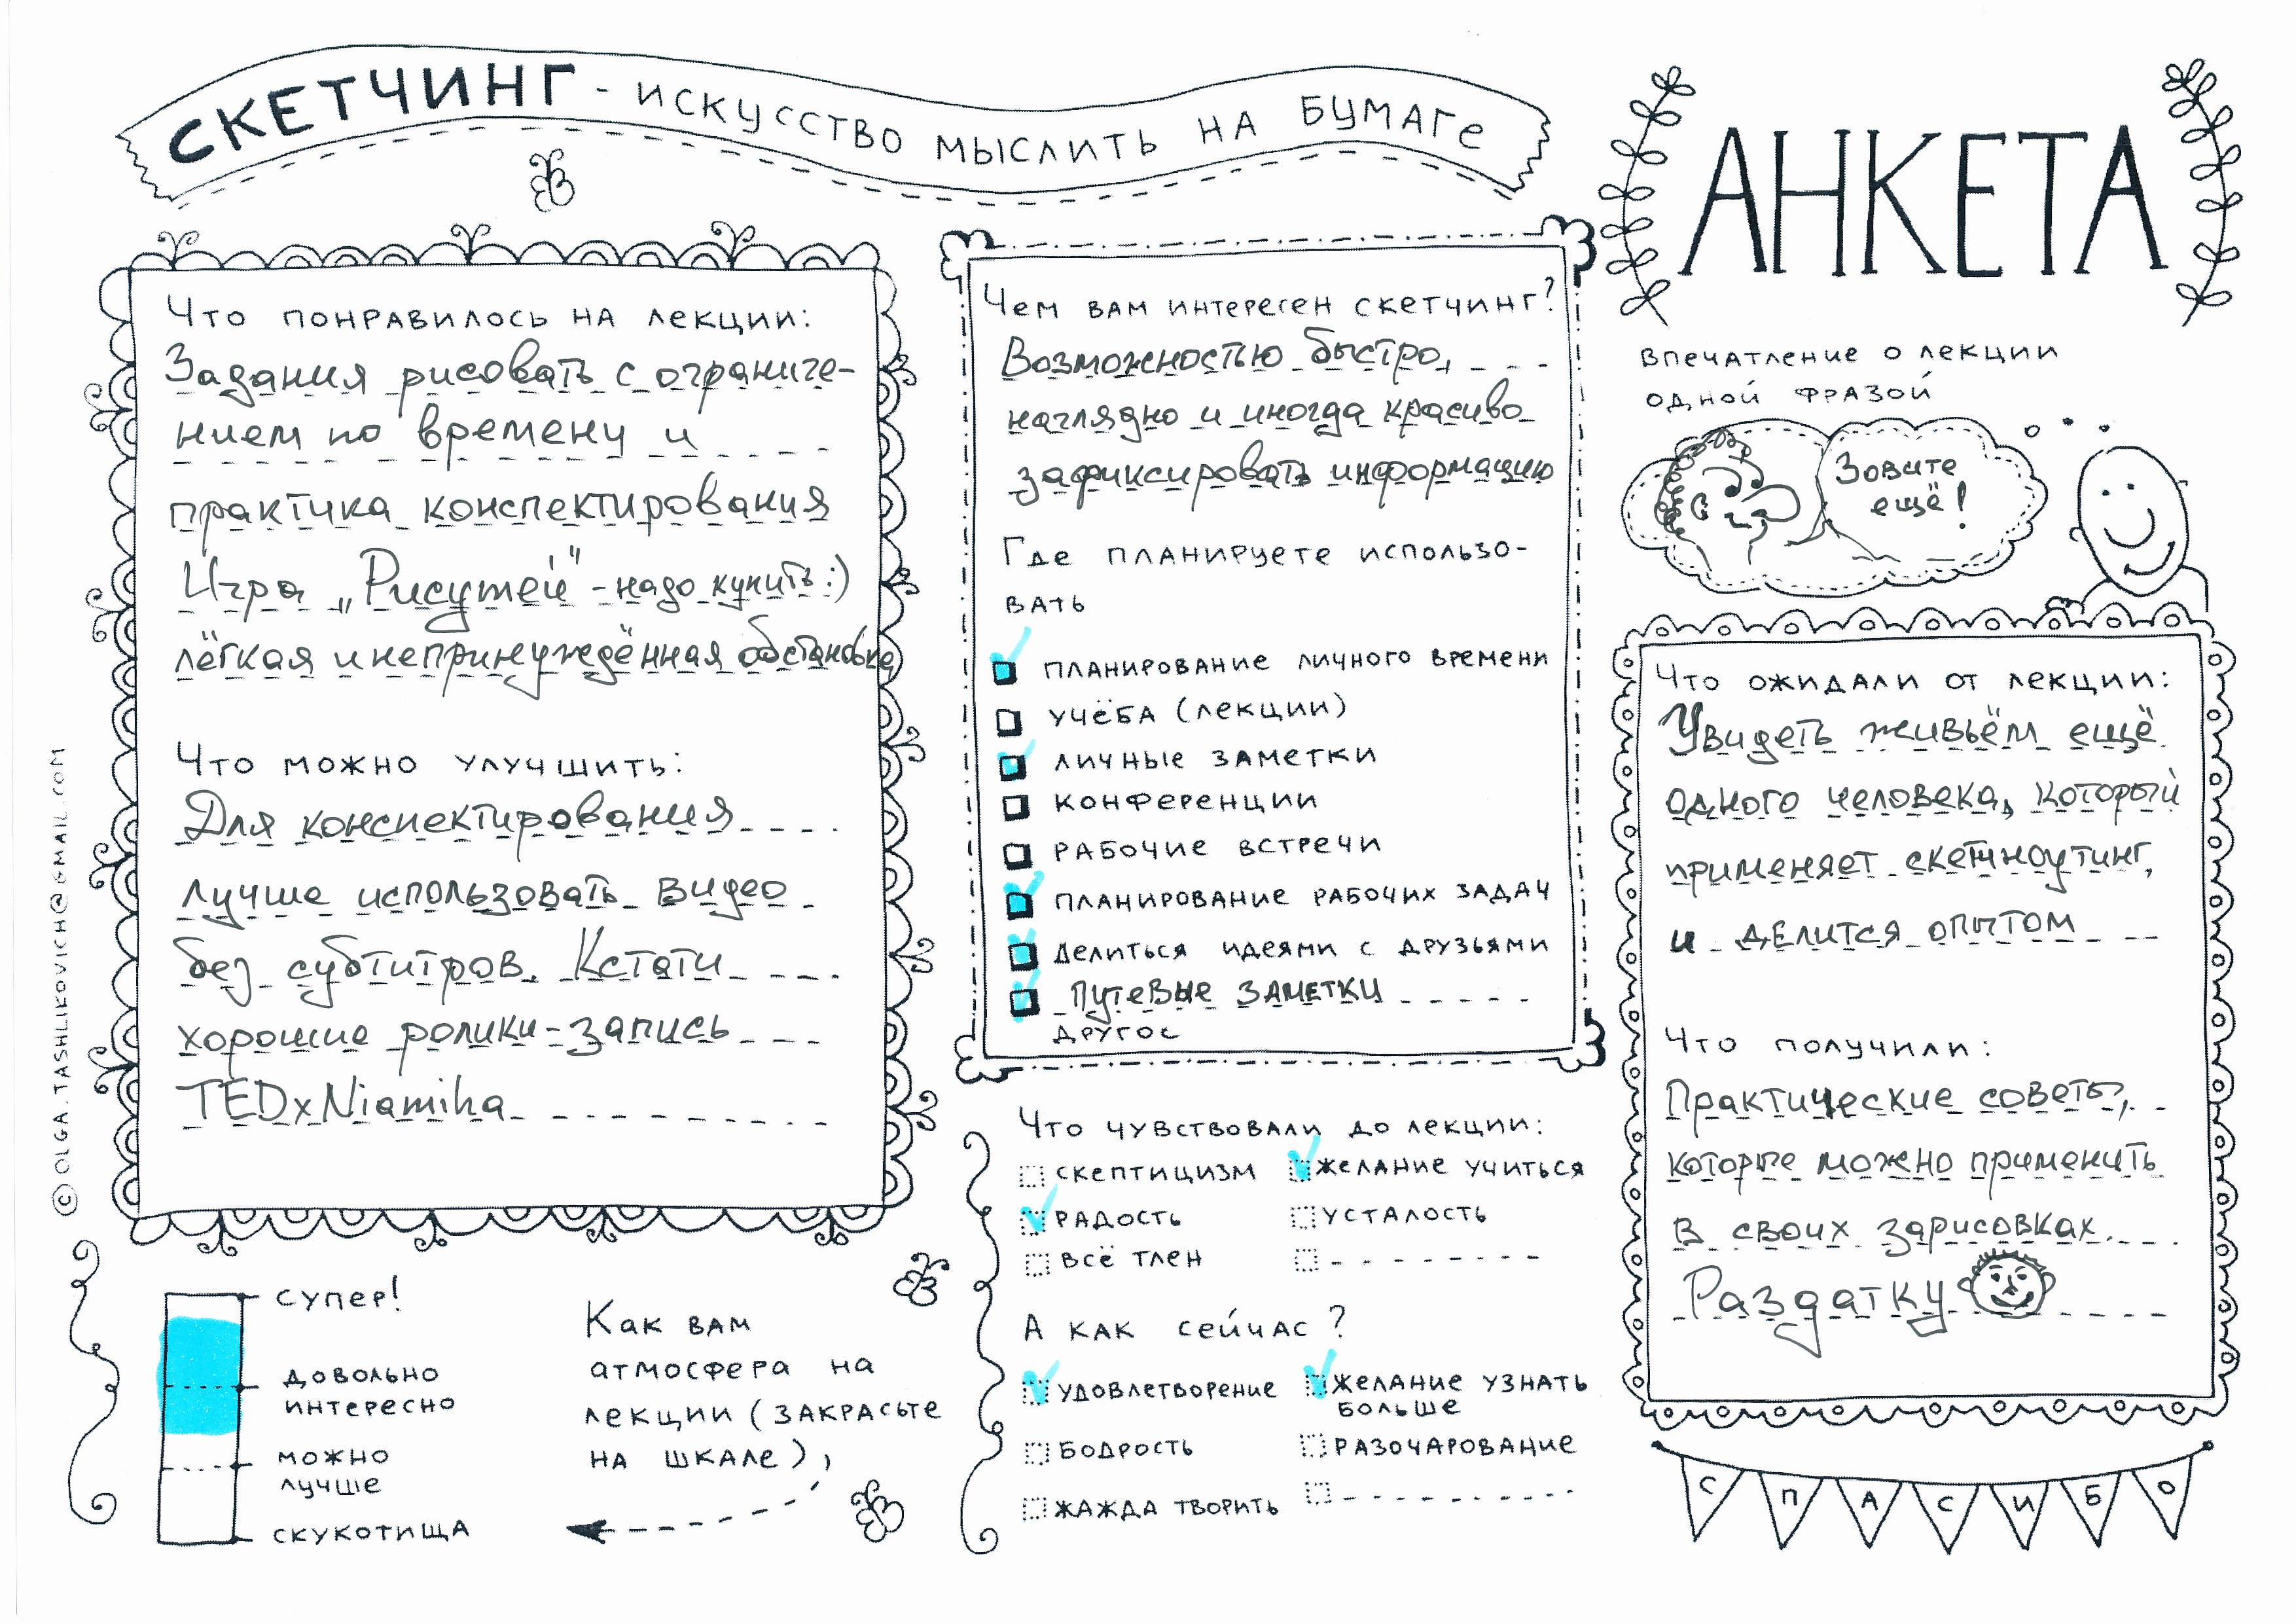 СКЕТЧИНГ - ИСКУССТВО МЫСЛИТЬ НА БУМАГЕ
АНКЕТА
Что понравилось на лекции:
Задания рисовать с ограниче-
нием по времену и
практика конспектирования
Игра „Рисутей" - надо купить :)
лёгкая и непринуждённая обстановка
Что можно улучшить:
Для конспектирования
лучше использовать видео
без субтитров. Кстати
хорошие ролики - запись
TEDxNiamiha
© OLGA.TASHLIKOVICH@GMAIL.COM
супер!
довольно
интересно
можно
лучше
скукотища
Как вам
атмосфера на
лекции (закрасьте
на шкале),
Чем вам интересен скетчинг?
Возможностью быстро,
наглядно и иногда красиво
зафиксировать информацию
Где планируете использо-
вать
планирование личного времени
учёба (лекции)
личные заметки
конференции
рабочие встречи
планирование рабочих задач
делиться идеями с друзьями
путевые заметки
другое
Что чувствовали до лекции:
скептицизм
желание учиться
радость
усталость
всё тлен
А как сейчас?
удовлетворение
желание узнать
больше
бодрость
разочарование
жажда творить
впечатление о лекции
одной фразой
Зовите
ещё!
Что ожидали от лекции:
Увидеть живьём ещё
одного человека, который
применяет скетчноутинг,
и делится опытом
Что получили:
Практические советы,
которые можно применить
в своих зарисовках.
Раздатку
СПАСИБО